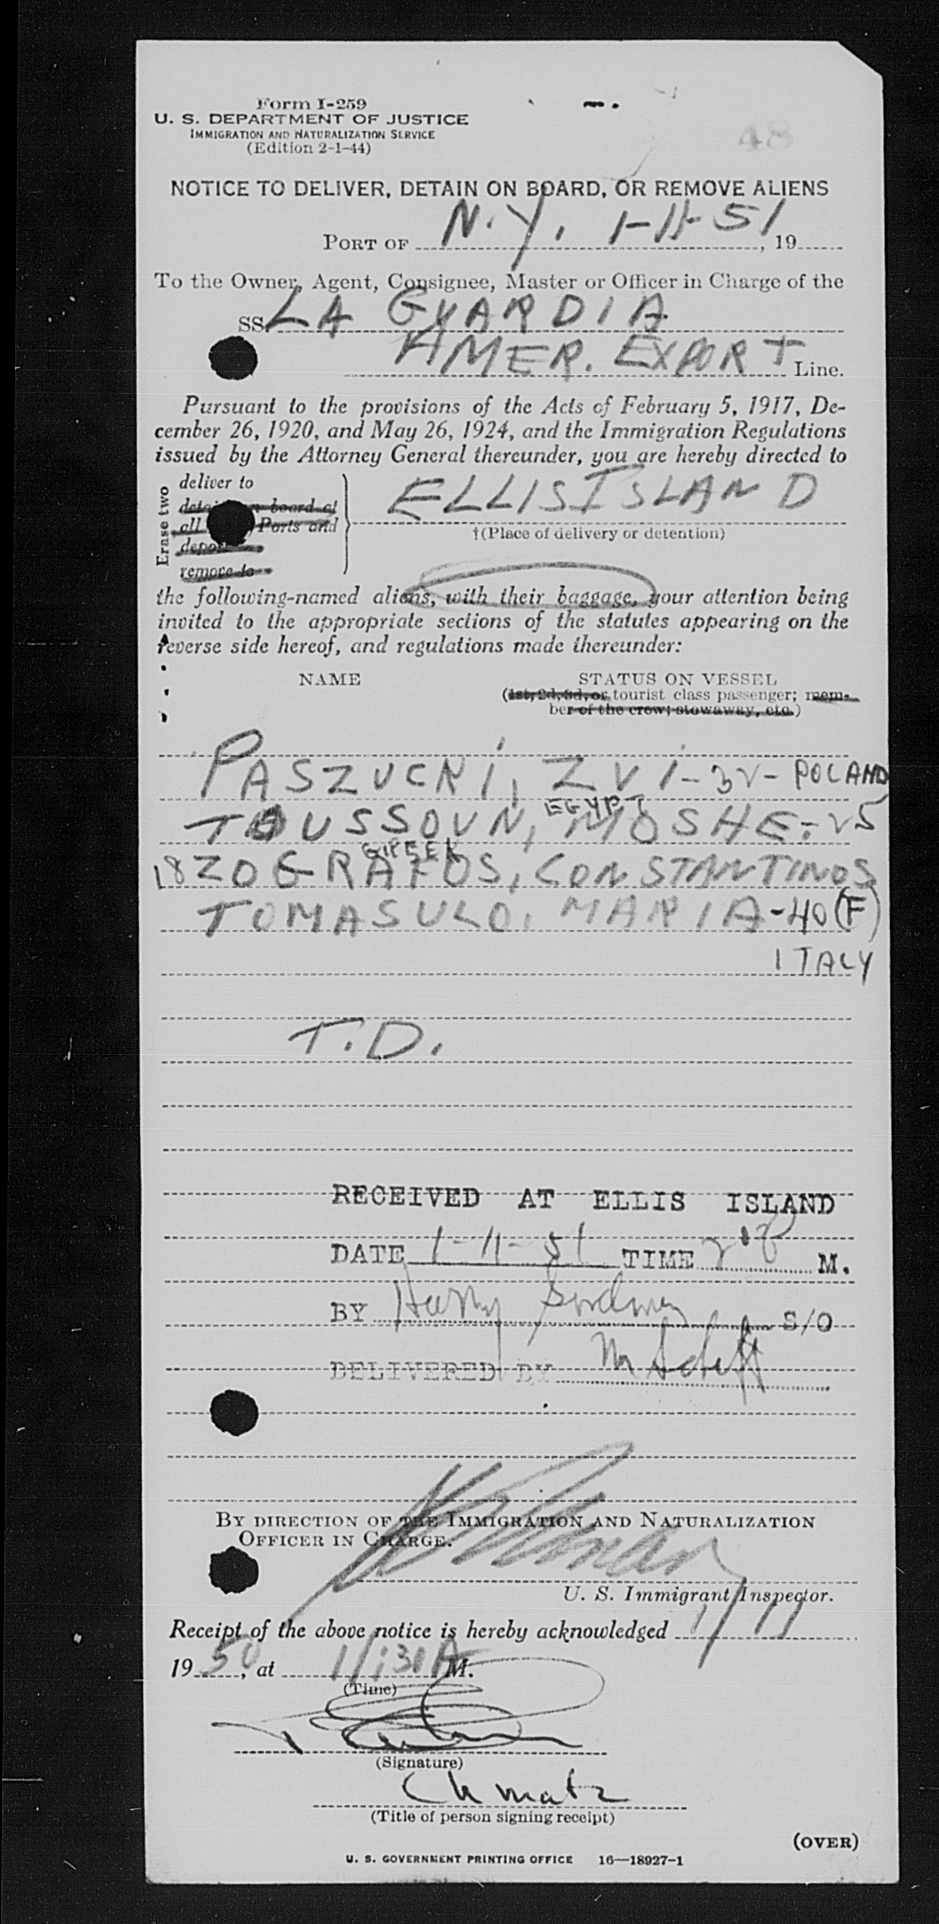 48
Form I-259
U. S. DEPARTMENT OF JUSTICE
IMMIGRATION AND NATURALIZATION SERVICE
(Edition 2-1-44)
NOTICE TO DELIVER, DETAIN ON BOARD, OR REMOVE ALIENS
PORT OF N.Y. 1-11-51, 19
To the Owner, Agent, Consignee, Master or Officer in Charge of the
SS LA GUARDIA
AMER. EXPORT Line.
Pursuant to the provisions of the Acts of February 5, 1917, De-
cember 26, 1920, and May 26, 1924, and the Immigration Regulations
issued by the Attorney General thereunder, you are hereby directed to
Erase two
deliver to
detain on board at
all Ports and
deport
remove to
ELLIS ISLAND
†(Place of delivery or detention)
the following-named aliens, with their baggage, your attention being
invited to the appropriate sections of the statutes appearing on the
reverse side hereof, and regulations made thereunder:
NAME
STATUS ON VESSEL
(1st, 2d, 3d, or tourist class passenger; mem-
ber of the crew; stowaway, etc.)
PASZUCKI, ZVI - 32 - POLAND
EGYPT
TOUSSOUN, MOSHE - 25
GREEK
18 ZOGRAFOS, CONSTANTINOS
TOMASULO, MARIA - 40 (F)
ITALY
T.D.
RECEIVED AT ELLIS ISLAND
DATE 1-11-51 TIME M.
BY Harry S/O
DELIVERED BY M
BY DIRECTION OF THE IMMIGRATION AND NATURALIZATION
OFFICER IN CHARGE.
U. S. Immigrant Inspector.
Receipt of the above notice is hereby acknowledged 1/11
1950, at 11:30 A M.
(Time)
(Signature)
Ch matz
(Title of person signing receipt)
(OVER)
U. S. GOVERNMENT PRINTING OFFICE 16—18927-1